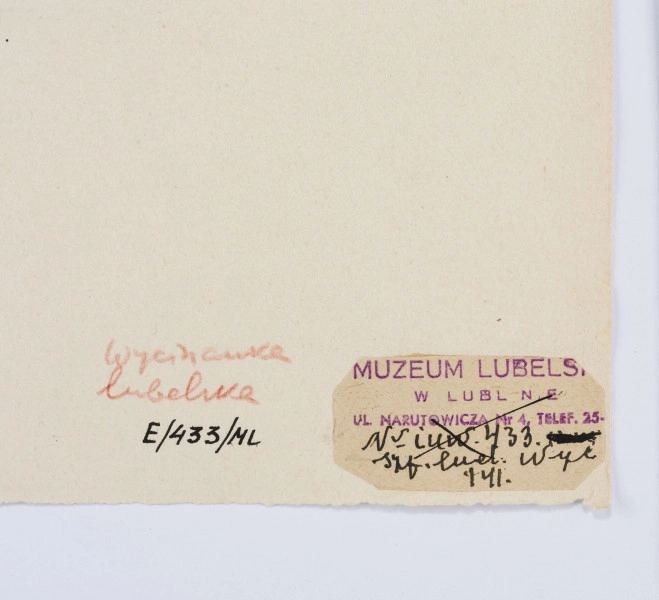 Wycinanka
lubelska
E/433/ML
MUZEUM LUBELS
W LUBL NE
UL. NARUTOWICZA Nr 4, TELEF. 25-
No inw. 433.
Szt. lud. Wyc